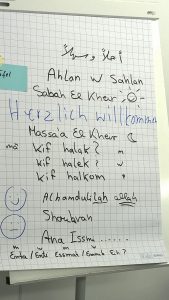 أهلاً وسهلاً
Ahlan w Sahlan
Sabah El Kheir
Herzlich willkommen
Massa'a El Kheir
Kif halak? m
Kif halek? w
Kif halkom
Alhamdulilah
Shoukran
Ana Issmi ......